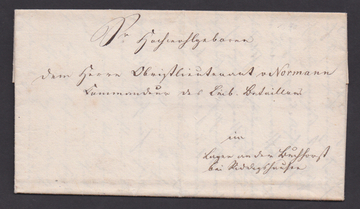 Sr Hochwohlgeboren
dem Herrn Obristlieutenant v Normann
Commandeur des Leib Bataillon
im
Lager an der Buchhorst
bei Riddagshausen